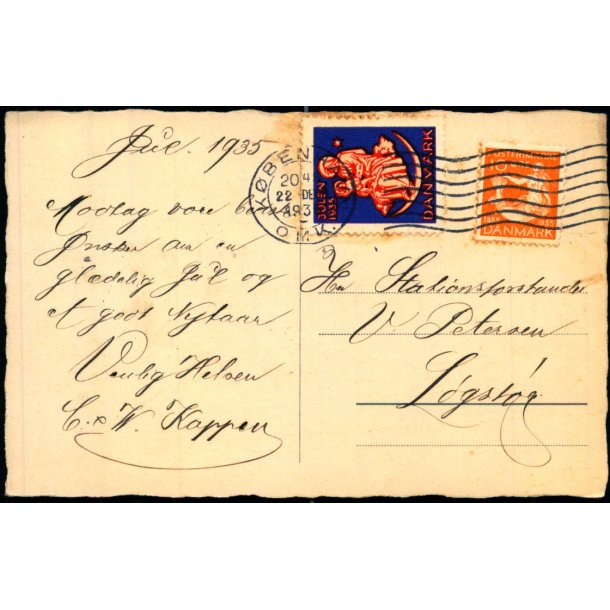 Jul 1935
Modtag vore bedste
Ønsker om en
glædelig Jul og
et godt Nytaar.
Venlig Hilsen
C. & W. Kappen
KØBENH
20-4
22 DE
193
OMK.
JULEN
1935
DANMARK
POSTFRIMÆRKE
10
DANMARK
Hr Stationsforstander
V. Petersen
Løgstør